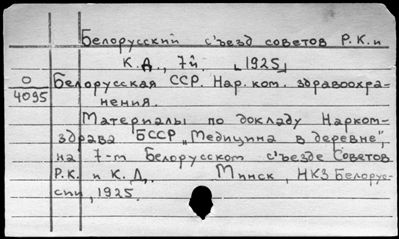 Белорусский съезд советов Р.К. и
К.Д., 7й, 1925,
О
4095
Белорусская ССР. Нар. ком. здравоохра-
нения.
Материалы по докладу Нарком-
здрава БССР „Медицина в деревне",
на 7-м Белорусском съезде Советов
Р.К. и К.Д. Минск, НКЗ Белорус-
сии, 1925.